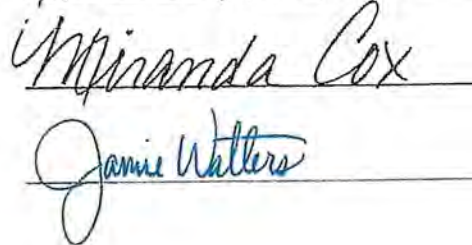 Miranda Cox
Jamie Walters